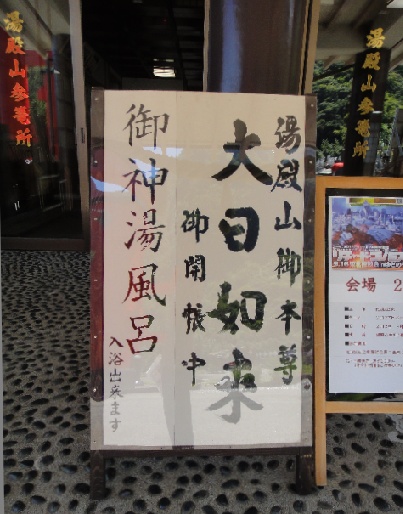 湯殿山参篭所
湯殿山御本尊
大日如来
御開帳中
御神湯風呂
入浴出来ます
湯殿山参篭所
会場